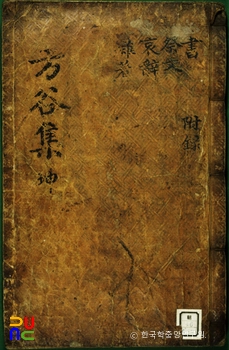 書
祭文
哀辞
雜著
附錄
方谷集 坤
© 한국학중앙연구원